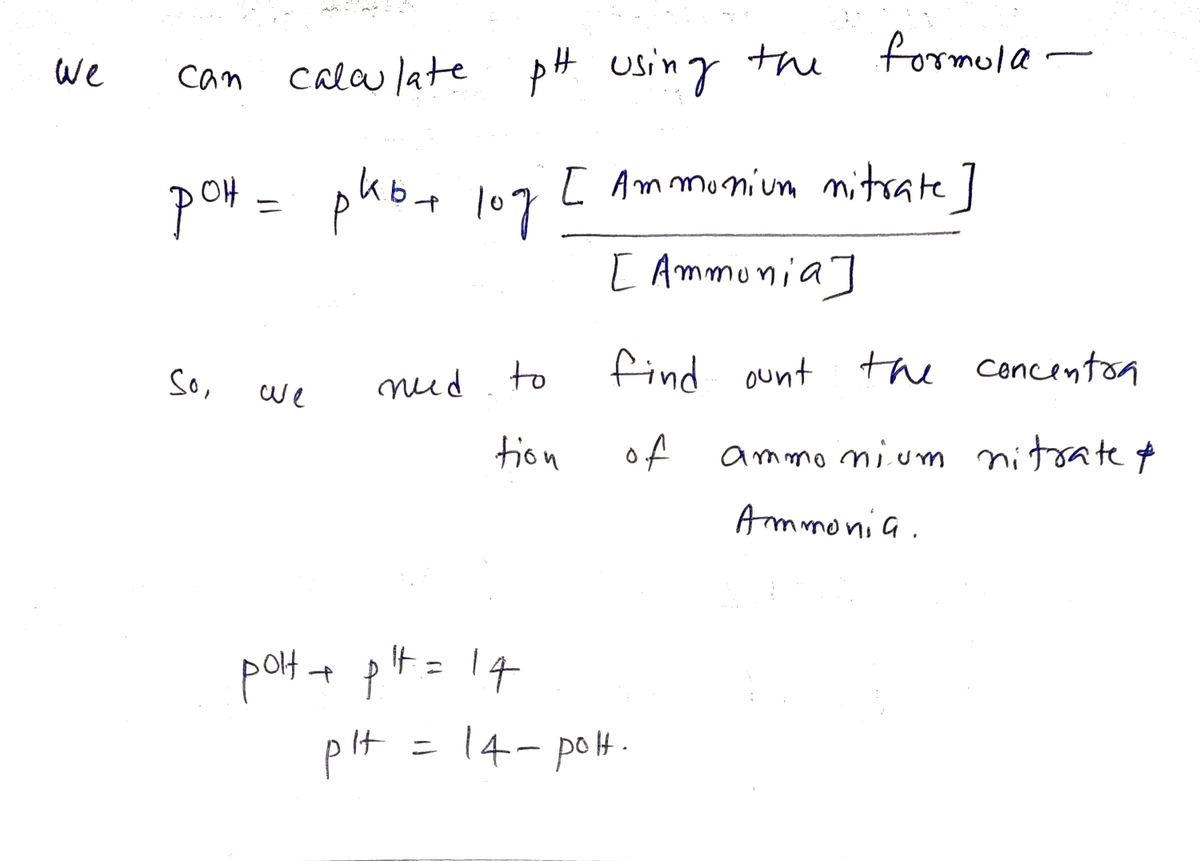 We can calculate pH using the formula –
pOH = pKb + log [Ammonium nitrate]
[Ammonia]
So, we need to find ount the concentra
tion of ammonium nitrate &
Ammonia.
pOH + pH = 14
pH = 14 - pOH.